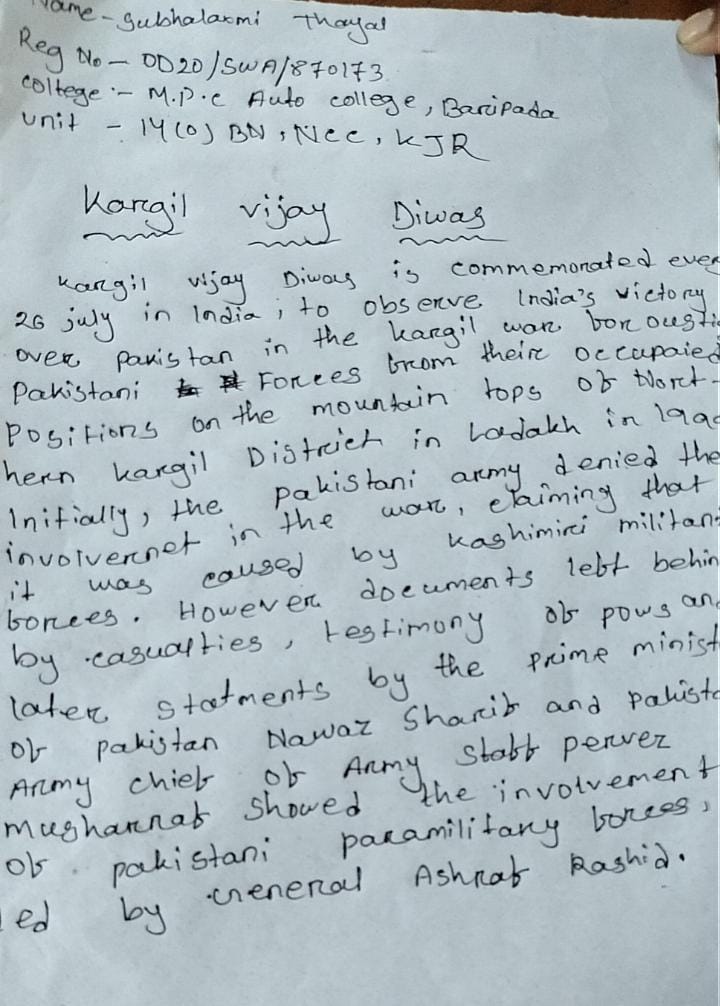 Name - Subhalaxmi Thayal
Reg No - OD20/SWA/870173
college :- M.P.C Auto college, Baripada
unit - 14(O) BN, NCC, KJR
Kargil vijay Diwas
kargil vijay Diwas is commemorated ever
26 july in India, to observe India's victory
over pakistan in the kargil war for ousti
Pakistani Forces from their occupaied
Positions on the mountain tops of Nort-
hern kargil District in Ladakh in 199
Initially, the pakistani army denied the
involvernet in the war, claiming that
it was caused by kashimiri militan
forces. However documents left behin
by casualties, testimony of pows an
later statments by the prime minist
of pakistan Nawaz Sharif and pakista
Army chief of Army staff perver
musharraf showed the involvement
of pakistani paramilitary forces,
led by General Ashraf Rashid.